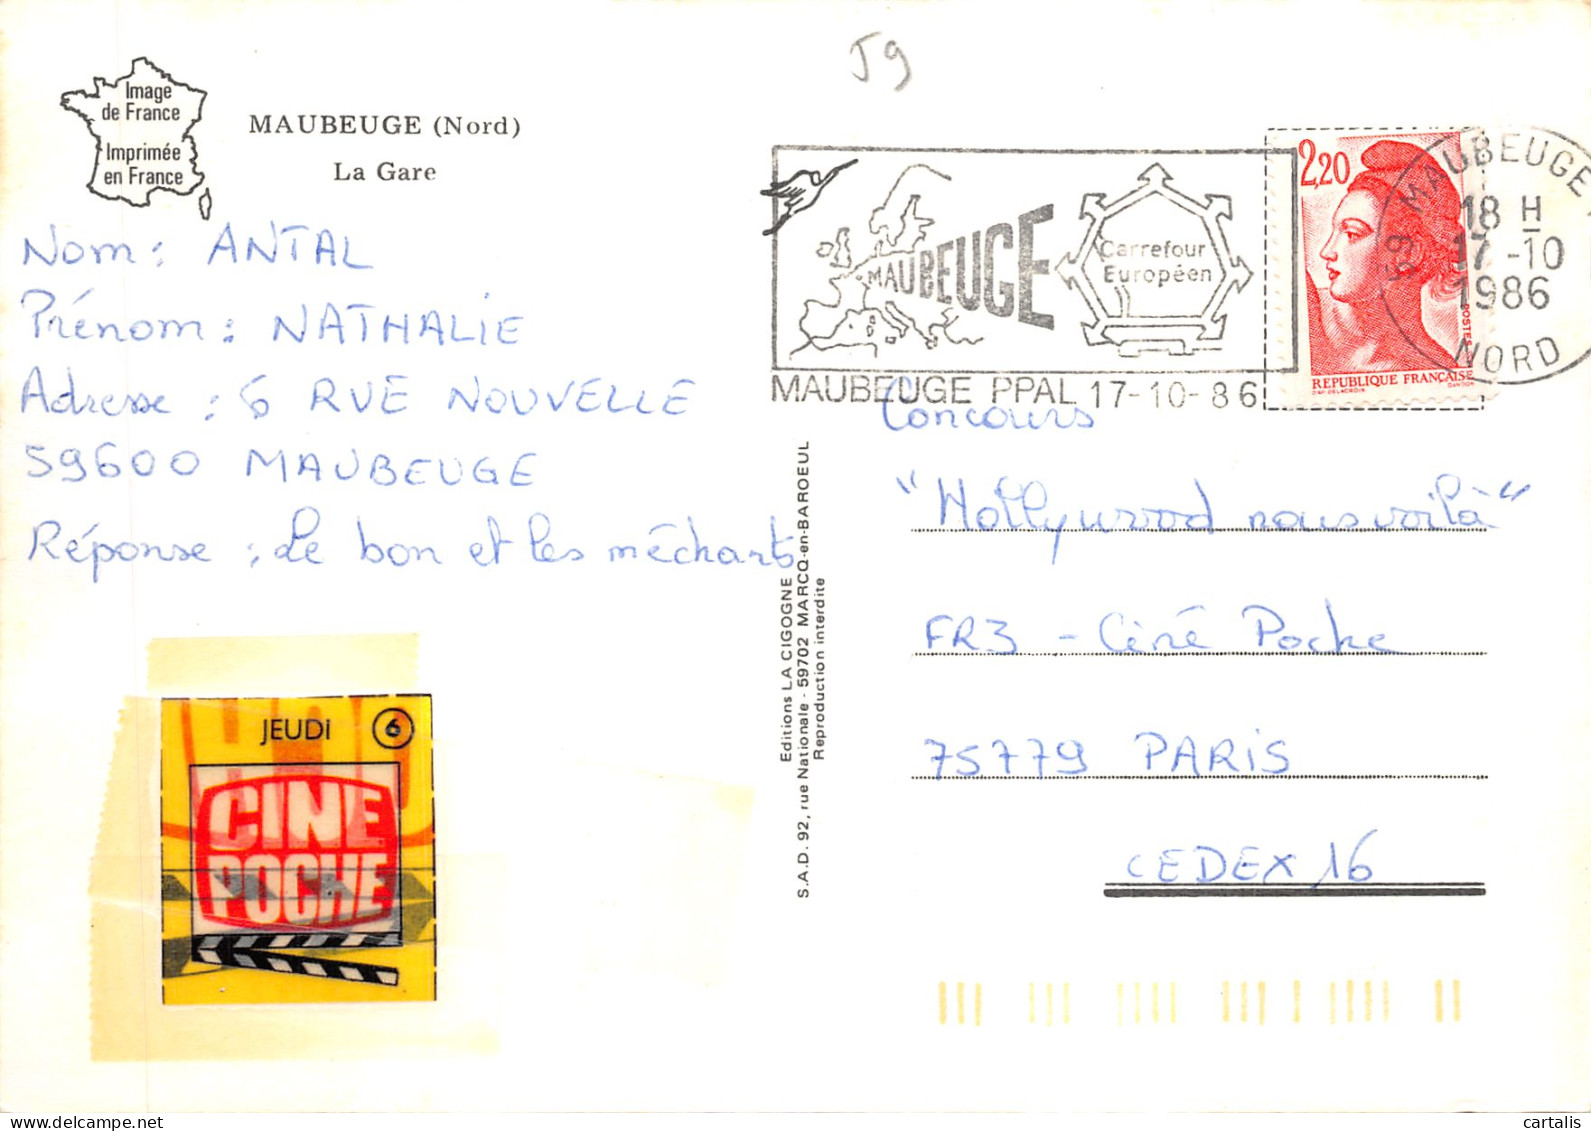 J9
Image
de France
Imprimée
en France
MAUBEUGE (Nord)
La Gare
Nom : ANTAL
Prénom : NATHALIE
Adresse : 6 RUE NOUVELLE
59600 MAUBEUGE
Réponse : Le bon et les méchants
JEUDI 6
CINE
POCHE
Editions LA CIGOGNE
S.A.D. 92, rue Nationale - 59702 MARCQ-en-BAROEUL
Reproduction interdite
MAUBEUGE
Carrefour
Européen
MAUBEUGE PPAL 17-10-86
2,20
POSTES
REPUBLIQUE FRANÇAISE
D'AP. DELACROIX GANDON
59 MAUBEUGE
18 H
17-10
1986
NORD
Concours
"Hollywood nous voilà"
FR3 - Ciné Poche
75779 PARIS
CEDEX 16
cartalis